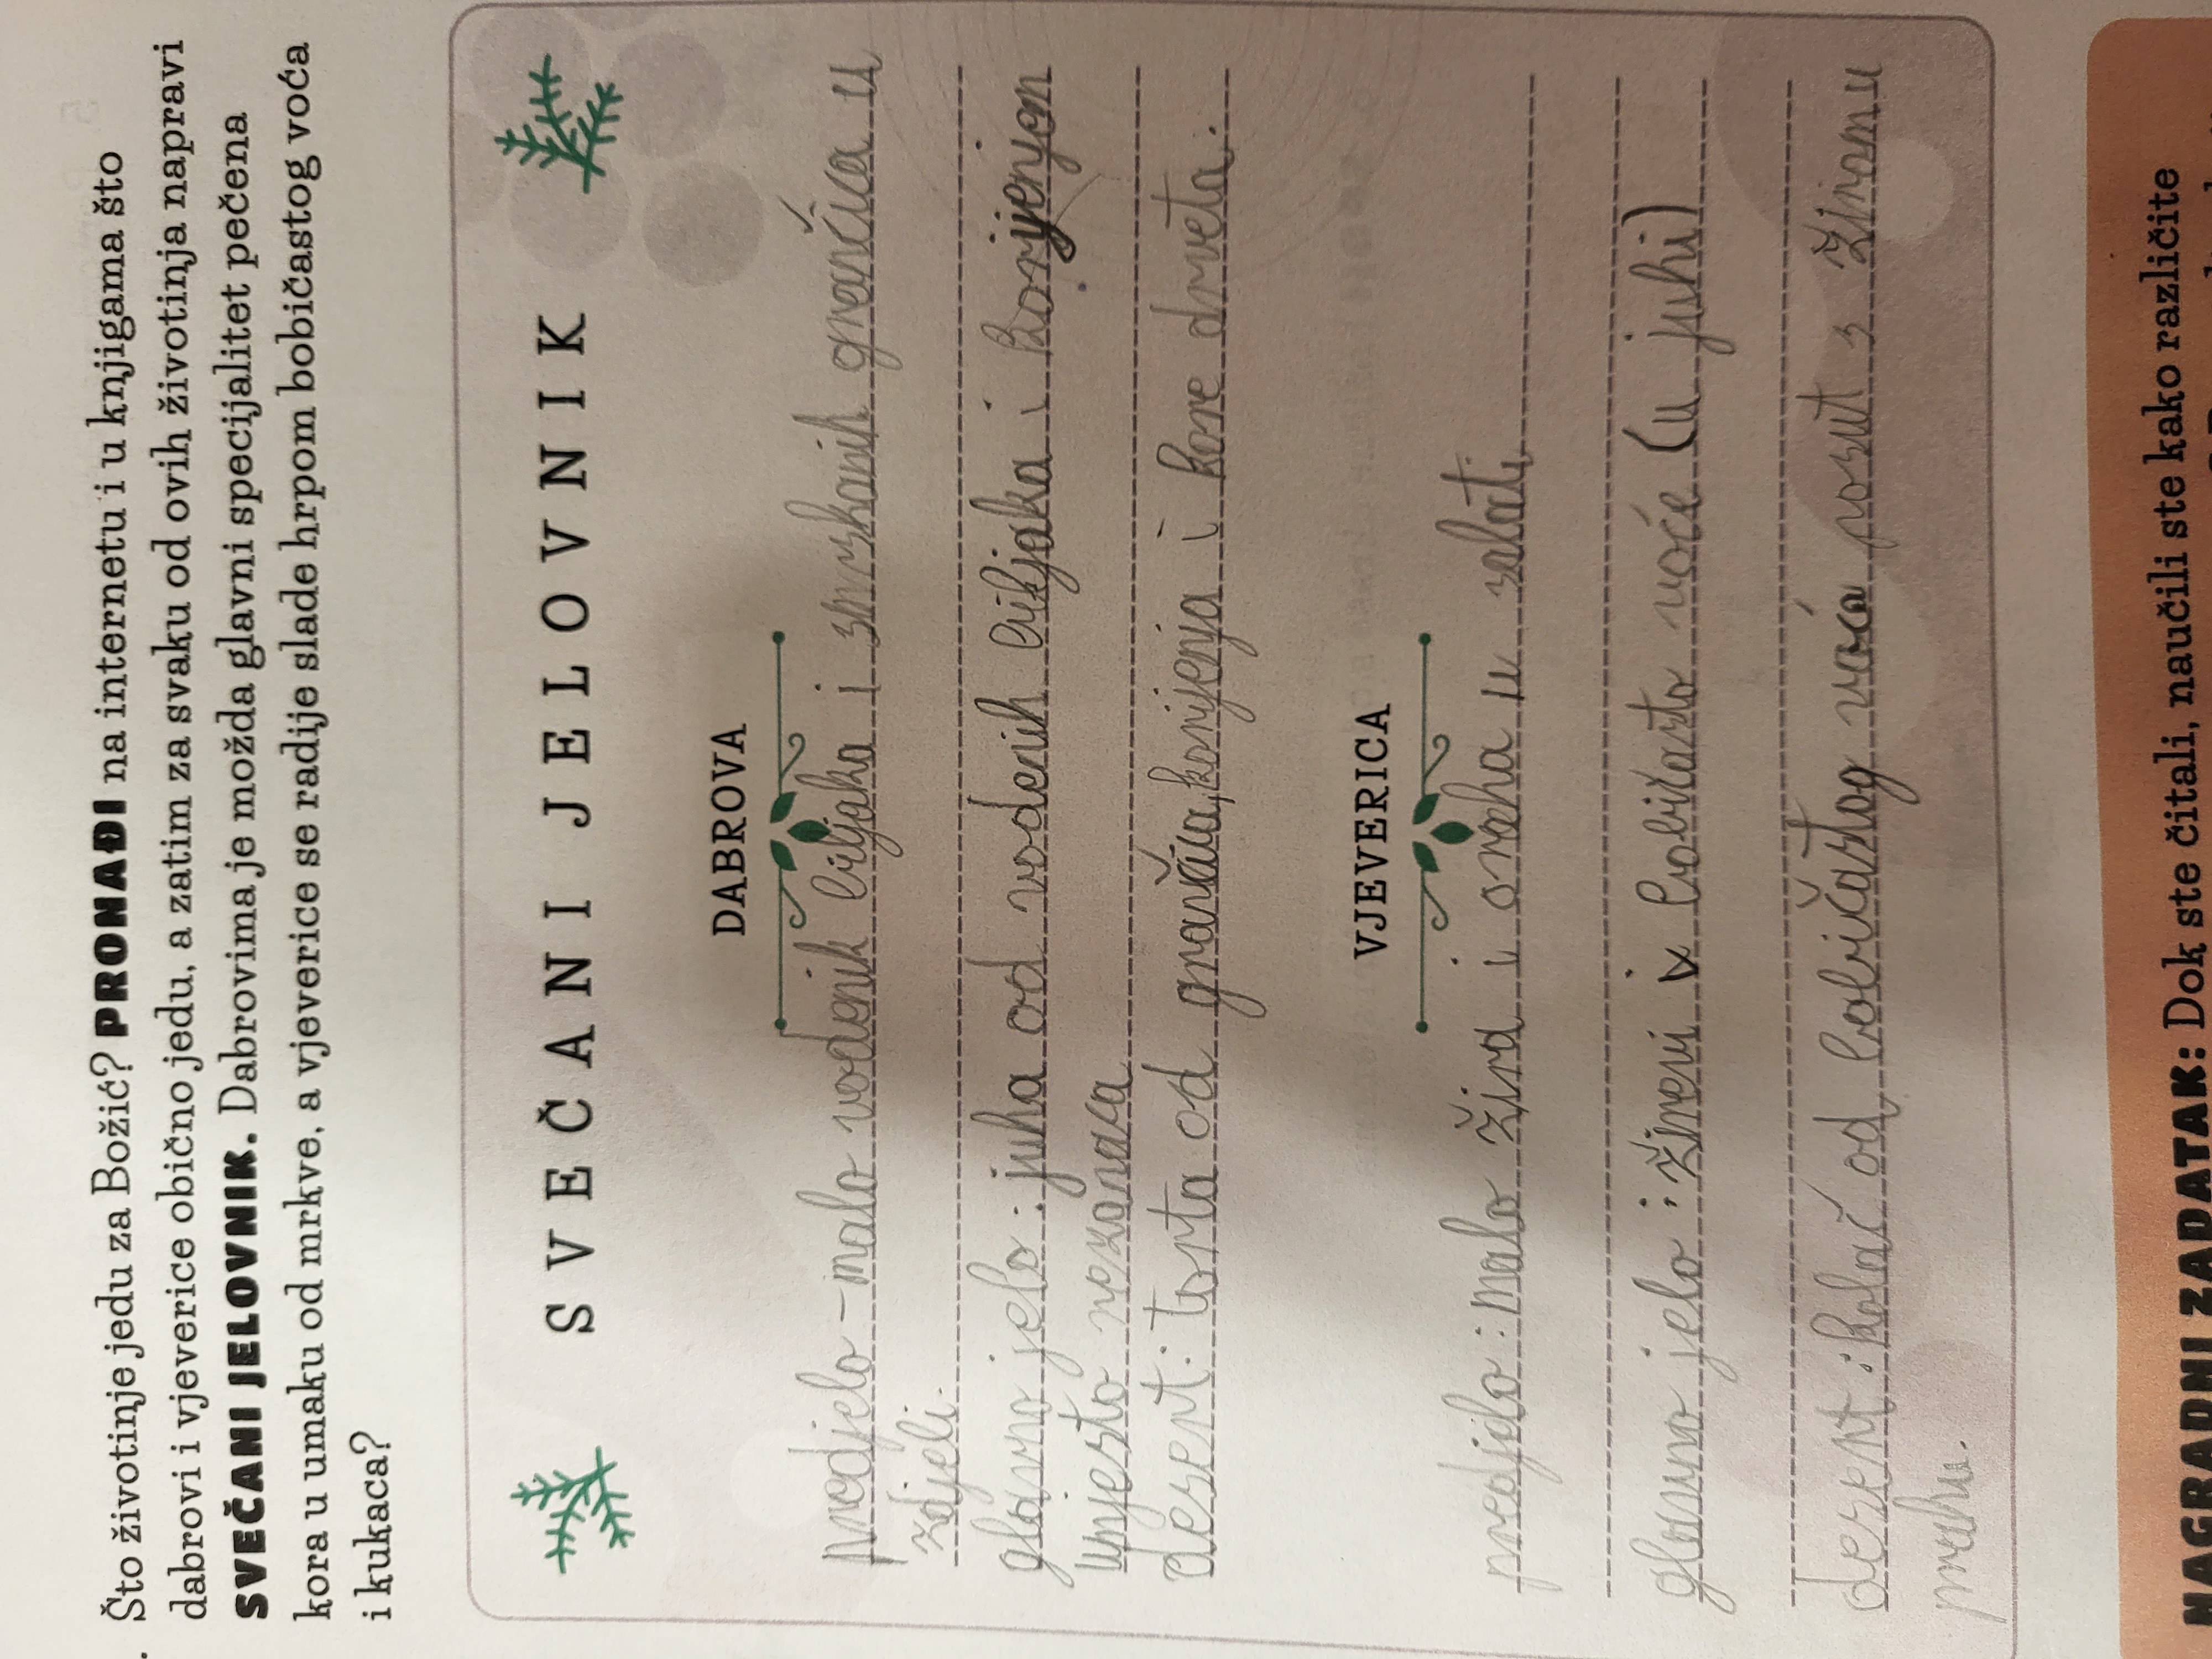 Što životinje jedu za Božić? PRONAĐI na internetu i u knjigama što
dabrovi i vjeverice obično jedu, a zatim za svaku od ovih životinja napravi
SVEČANI JELOVNIK. Dabrovima je možda glavni specijalitet pečena
kora u umaku od mrkve, a vjeverice se radije slade hrpom bobičastog voća
i kukaca?
SVEČANI JELOVNIK
DABROVA
predjelo - malo vodenih biljaka i smrskanih grančica u
zdjeli.
glavno jelo: juha od vodenih biljaka i korijenjem
umjesto rezanaca
desert: torta od grančica, korijenja i kore drveta.
VJEVERICA
predjelo: malo žira i oraha u salati.
glavno jelo: žirevi v bobičasto voće (u juhi)
desert: kolač od bobičastog voća posut s žiromu
prahu.
NAGRADNI ZADATAK: Dok ste čitali, naučili ste kako različite